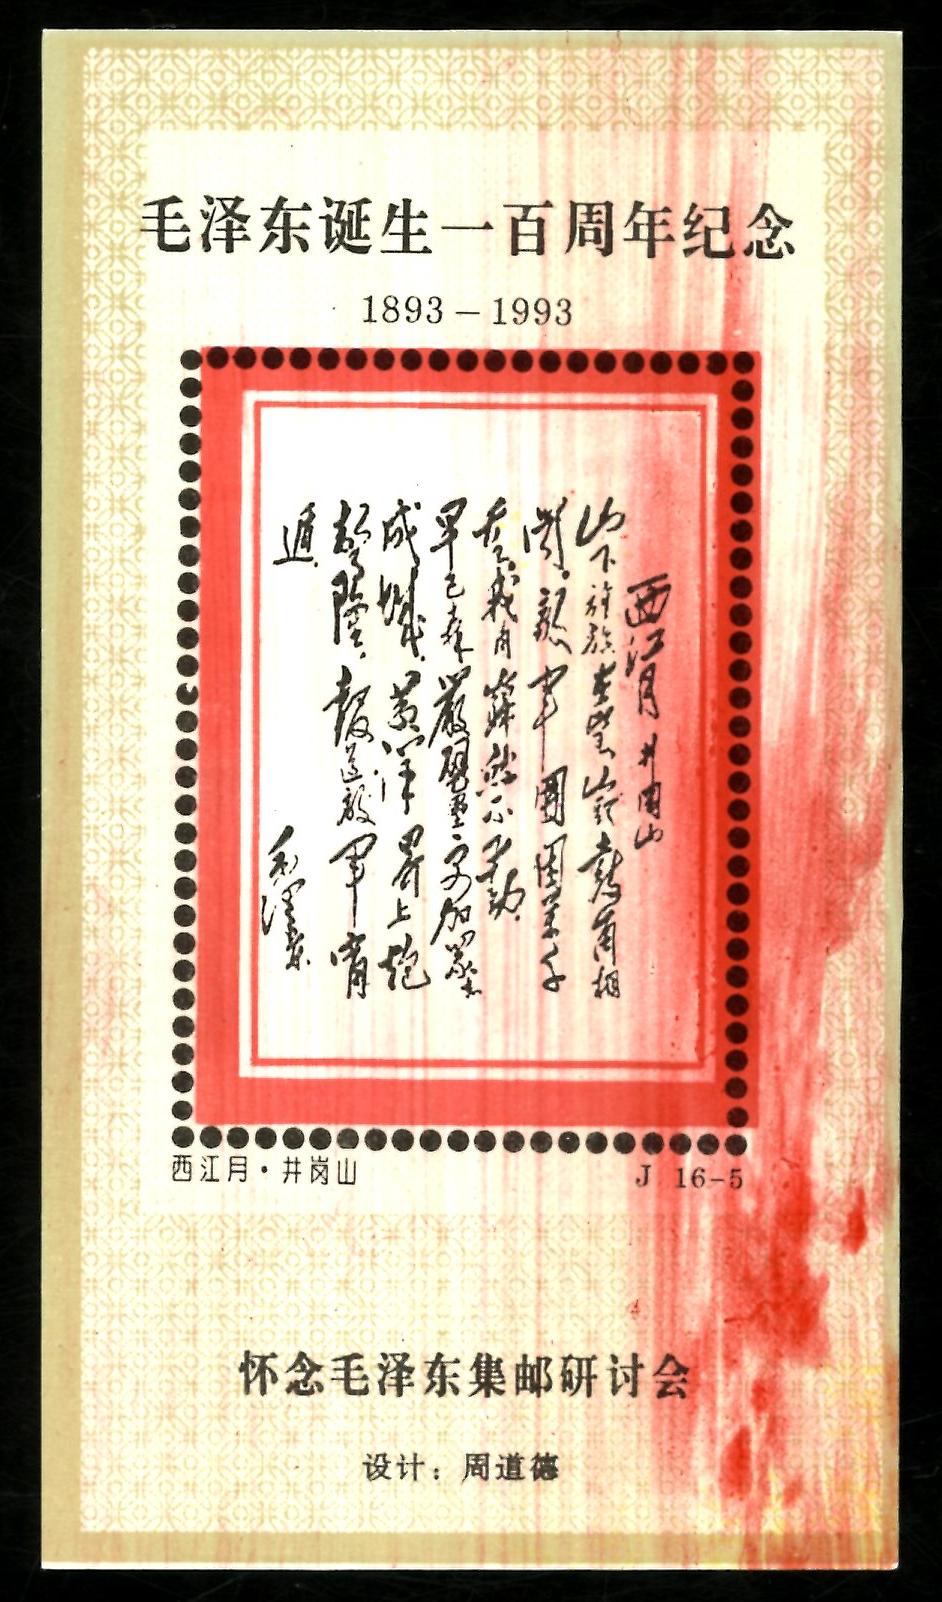 毛泽东诞生一百周年纪念
1893－1993
西江月 井岡山
山下旌旗在望山頭鼓角相
聞。敵軍圍困萬千
重我自巋然不動。
早已森嚴壁壘、更加衆志
成城。黄洋界上炮
聲隆。報道敵軍宵
遁。
毛澤東
西江月·井岗山
J 16-5
怀念毛泽东集邮研讨会
设计：周道德